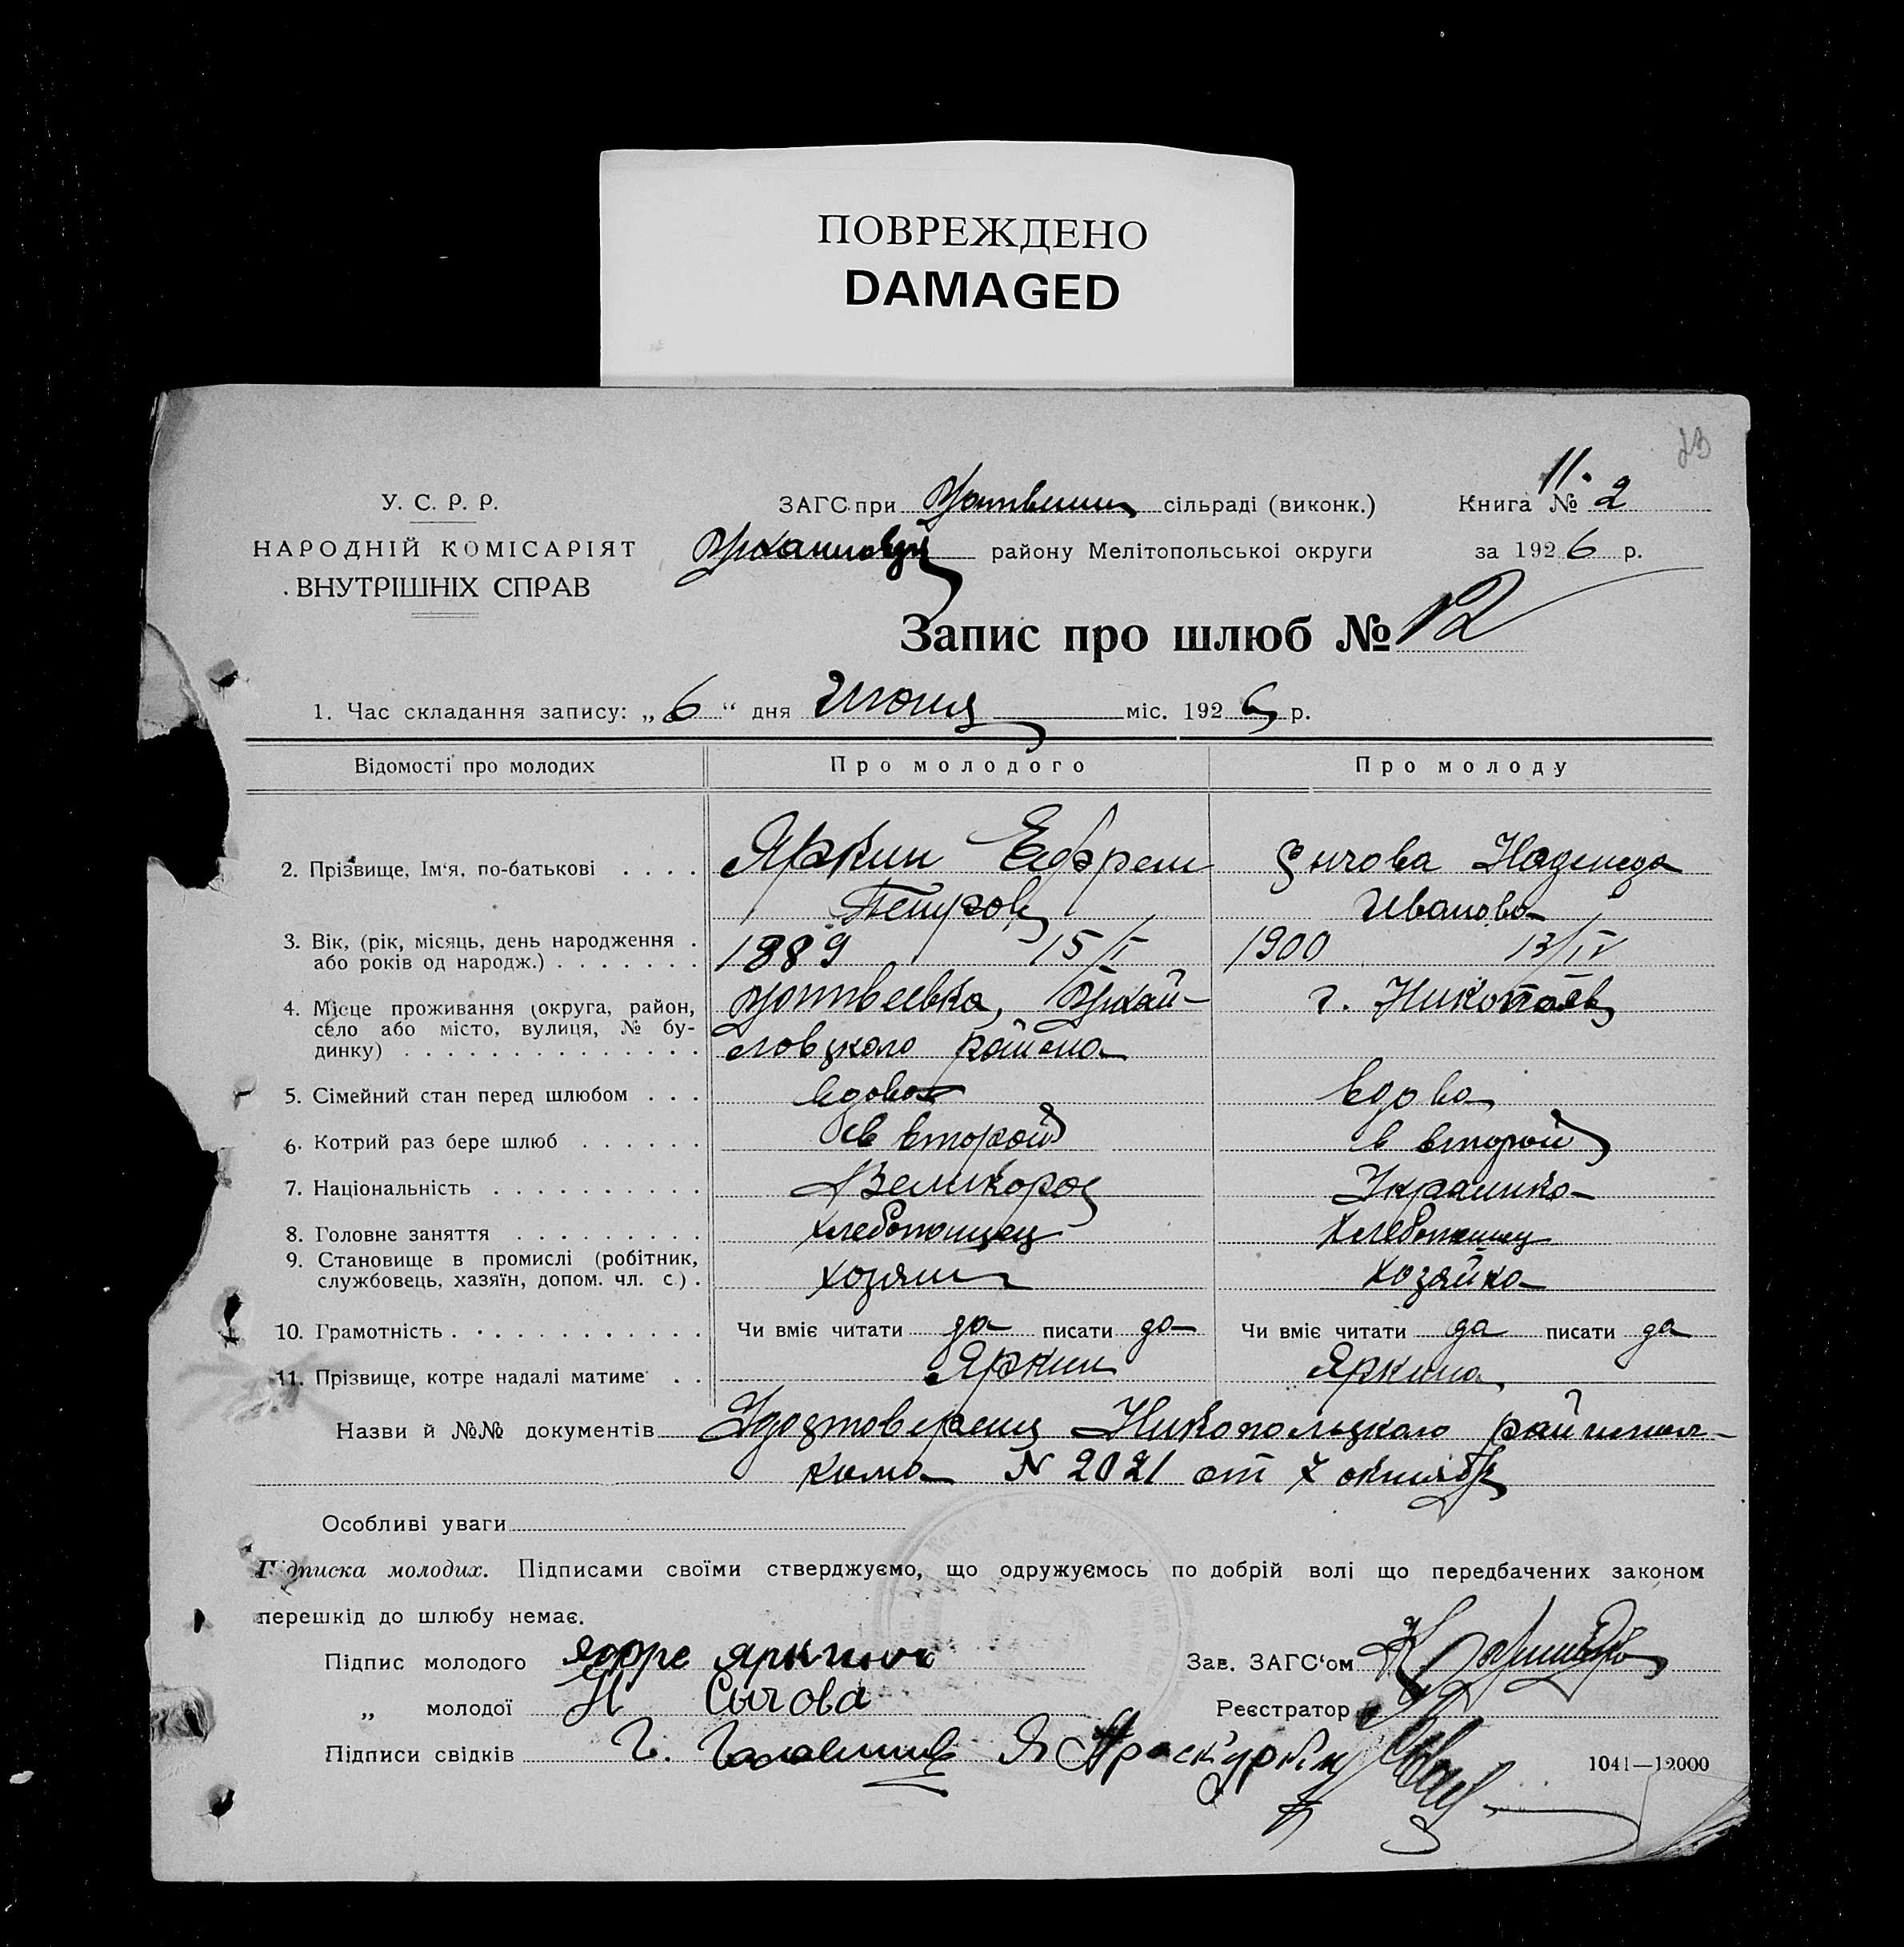 ПОВРЕЖДЕНО
DAMAGED
23
11.
У. С. Р. Р.
НАРОДНІЙ КОМІСАРІЯТ
ВНУТРІШНІХ СПРАВ
ЗАГС при сільраді (виконк.)
району Мелітопольської округи
Книга № 2
за 1926 р.
Запис про шлюб № 12
1. Час складання запису: „6“ дня Июня міс. 1926 р.
Відомості про молодих Про молодого Про молоду
2. Прізвище, Ім'я, по-батькові . . . . Яркин Ефрем Сычова Надежда
Петров Иванова
3. Вік, (рік, місяць, день народження . 1889 15/I 1900 13/IV
або років од народж.) . . . . . . .
4. Місце проживання (округа, район, Матвеевка, Михай- г. Николаев
село або місто, вулиця, № бу- ловского района
динку) . . . . . . . . . . . . . .
5. Сімейний стан перед шлюбом . . . вдова
6. Котрий раз бере шлюб . . . . . . в второй в второй
7. Національність . . . . . . . . . . Великорос Украинка
8. Головне заняття . . . . . . . . . хлебопашец хлебопашец
9. Становище в промислі (робітник,
службовець, хазяїн, допом. чл. с.) . хозяин хозяйка
10. Грамотність . . . . . . . . . . . . Чи вміє читати да писати да Чи вміє читати да писати да
11. Прізвище, котре надалі матиме . . Яркин Яркина
Назви й №№ документів Удостоверение Никопольского райиспол-
кома N 2021 от 7 октября
Особливі уваги
Підписка молодих. Підписами своїми стверджуємо, що одружуємось по добрій волі що передбачених законом
перешкід до шлюбу немає.
Підпис молодого Зав. ЗАГС'ом
„ молодої Н Сычова Реєстратор
Підписи свідків
1041—12000